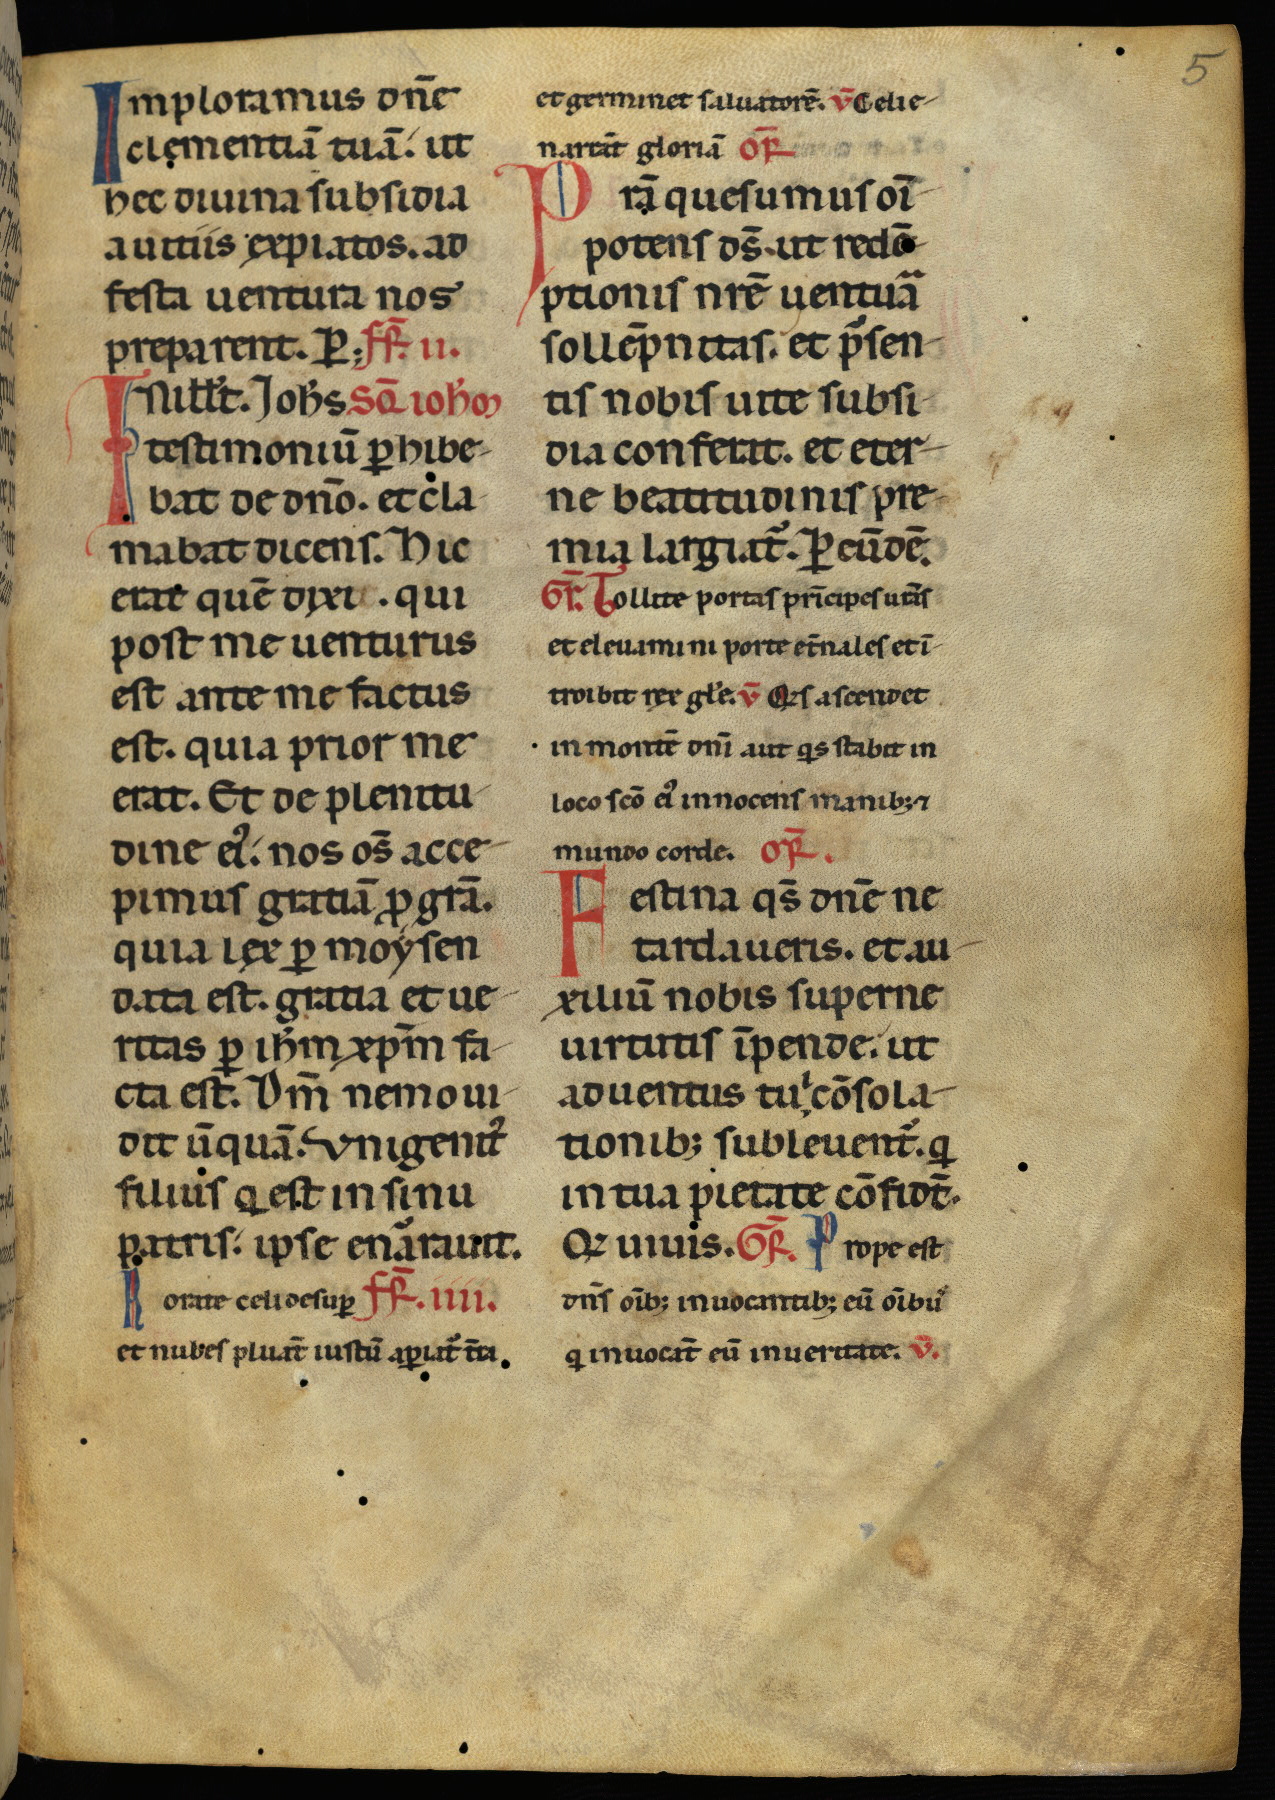 5
Imploramus dn̄e
clementiā tuā. ut
hec diuina subsidia
a uitiis expiatos. ad
festa uentura nos
preparent. P̲; fr̄. ii.
In ill't. Joh̄s Sc̄d ioh'm
testimoniū ꝑhibe-
bat de dn̄o. et cla-
mabat dicens. Hic
erat quē dixi . qui
post me uenturus
est ante me factus
est. quia prior me
erat. Et de plenitu-
dine ei᾽. nos om̄s acce-
pimus gratiā ꝓ grā.
quia lex ꝑ moẏsen
data est. gratia et ue-
ritas ꝑ ih̄m xp̄m fa-
cta est. Dm̄ nemo ui-
dit ūquā. Vnigenit᾽
filius q est in sinu
patris. ipse enarauit.
Rorate celi desuꝑ fr̄. iiii.
et nubes pluāt iustū aꝑiat᾽ t̄ra.
et germinet saluatorē. v̄ Celi e-
narrāt gloriā or̄
Prā quesumus oī-
potens ds̄. ut redē-
ptionis nrē uentura
sollēpnitas. et p̄sen-
tis nobis uite subsi-
dia conferat. et eter-
ne beatitudinis pre-
mia largiat᾽. P̲ eūdē.
Gr̄. Tollite portas prīcipes urās
et eleuamini porte etn̄ales et ī-
troibit rex gl'e. v̄ Qis ascendet
in montē dn̄i aut qis stabit in
loco scō ei᾽ innocens manib; ⁊
mundo corde. or̄.
Festina qs̄ dn̄e ne
tardaueris. et au-
xiliū nobis superne
uirtutis īpende. ut
aduentus tui cōsola-
tionib; subleuent᾽. q
in tua pietate cōfidt̄.
Qi uiuis. Gr̄. Prope est
dn̄s oīb; inuocantib; eū oīb'
q inuocāt eū in ueritate. v̄.